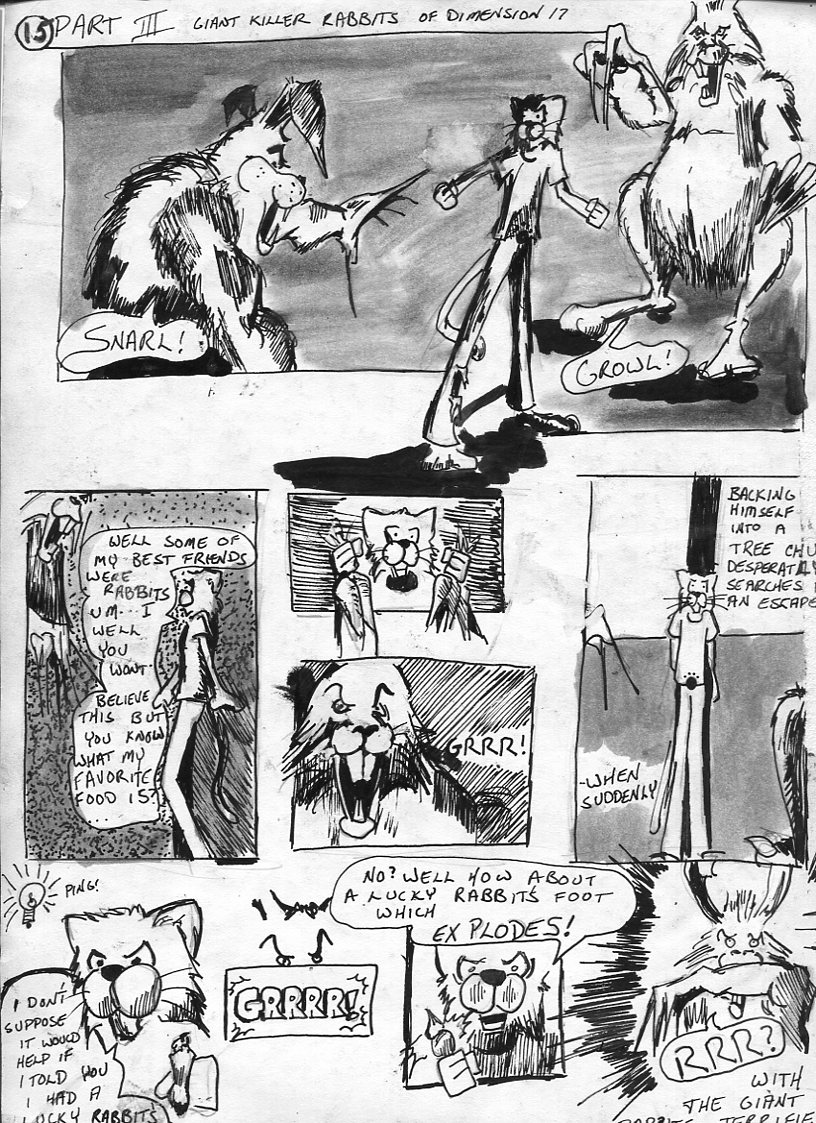 15 PART III GIANT KILLER RABBITS OF DIMENSION 17
SNARL!
GROWL!
WELL SOME OF
MY BEST FRIENDS
WERE
RABBITS
UM... I
WELL
YOU
WONT
BELIEVE
THIS BUT
YOU KNOW
WHAT MY
FAVORITE
FOOD IS?
GRRR!
BACKING
HIMSELF
INTO A
TREE CHU
DESPERATLY
SEARCHES
AN ESCAPE
-WHEN
SUDDENLY
PING!
I DON'T
SUPPOSE
IT WOULD
HELP IF
I TOLD YOU
I HAD A
LUCKY RABBITS
GRRRR!
NO? WELL HOW ABOUT
A LUCKY RABBITS FOOT
WHICH
EXPLODES!
RRR?
WITH
THE GIANT